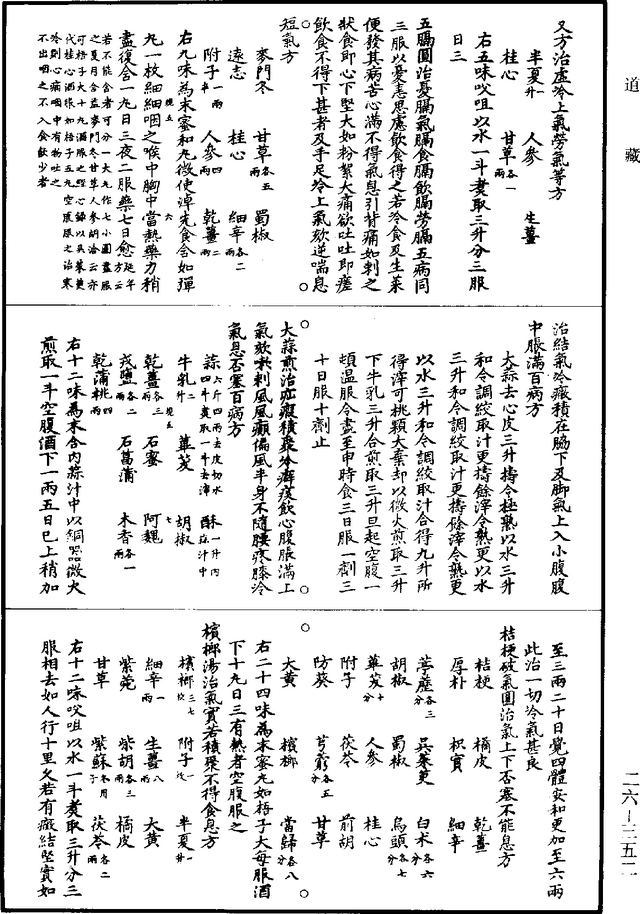 道藏
又方治虛冷上氣勞氣等方
半夏一升 人參 生薑
桂心 甘草各一兩
右五味㕮咀以水一斗煑取三升分三服
日三
五膈圓治憂膈氣膈食膈飲膈勞膈五病同
三服以憂恚思慮飲食得之若冷食及生菜
便發其病苦心滿不得氣息引背痛如刺之
狀食即心下堅大如粉絮大痛欲吐吐即瘥
飲食不得下甚者及手足冷上氣欬逆喘息
短氣方
麥門冬 甘草各五兩 蜀椒
遠志 桂心 細辛各二兩
附子一兩半 人參四兩 乾薑二兩
右九味為末蜜和丸微使淖先食含如彈
丸一枚細細咽之喉中胸中當熱藥力稍
盡復合一丸日三夜二服藥七日愈
若不能含者可分一大丸作七小圓盡服
之夏月含益麥門冬甘草人參胡洽云亦
可梧子大十丸酒服之經心錄以吳茱萸
代桂心酒服如梧子五丸空腹服之治寒
冷則心痛咽中有物吐之
不出咽之不入食飲少者
治結氣冷癥積在脇下及脚氣上入小腹腹
中脹滿百病方
大蒜去心皮三升擣令極熟以水三升
和令調絞取汁更擣餘滓令熟更以水
三升和令調絞取汁更擣餘滓令熟更
以水三升和令調絞取汁合得九升所
得滓可桃顆大棄却以微火煎取三升
下牛乳三升合煎取三升旦起空腹一
頓溫服令盡至申時食三日服一劑三
十日服十劑止
大蒜煎治疝癥積聚冷癖痰飲心腹脹滿上
氣欬嗽刺風風癲偏風半身不隨腰疼膝冷
氣息否塞百病方
蒜六斤四兩去皮切水四斗煑取一斗去滓 酥一升內在汁中
牛乳二升 蓽茇 胡椒
乾薑各三兩 石蜜 阿魏
戎鹽各二兩 石菖蒲 木香各一兩
乾蒲桃四兩
右十二味為末合內蒜汁中以銅器微火
煎取一斗空腹酒下一兩五日已上稍加
至三兩二十日覺四體安和更加至六兩
此治一切冷氣甚良
桔梗破氣圓治氣上下否塞不能息方
桔梗 橘皮 乾薑
厚朴 枳實 細辛
葶藶各三分 吳茱萸 白朮各六分
胡椒 蜀椒 烏頭各七分
蓽茇十分 人參 桂心
附子 茯苓 前胡
防葵 芎藭各五分 甘草
大黃 檳榔 當歸各八分
右二十四味為末蜜丸如梧子大每服酒
下十丸日三有熱者空腹服之
檳榔湯治氣實若積聚不得食息方
檳榔三七枚 附子一枚 半夏一升
細辛一兩 生薑八兩 大黃
紫菀 柴胡各三兩 橘皮
甘草 紫蘇冬月子 茯苓各二兩
右十二味㕮咀以水一斗煑取三升分三
服相去如人行十里久若有癥結堅實如
二六-三五二